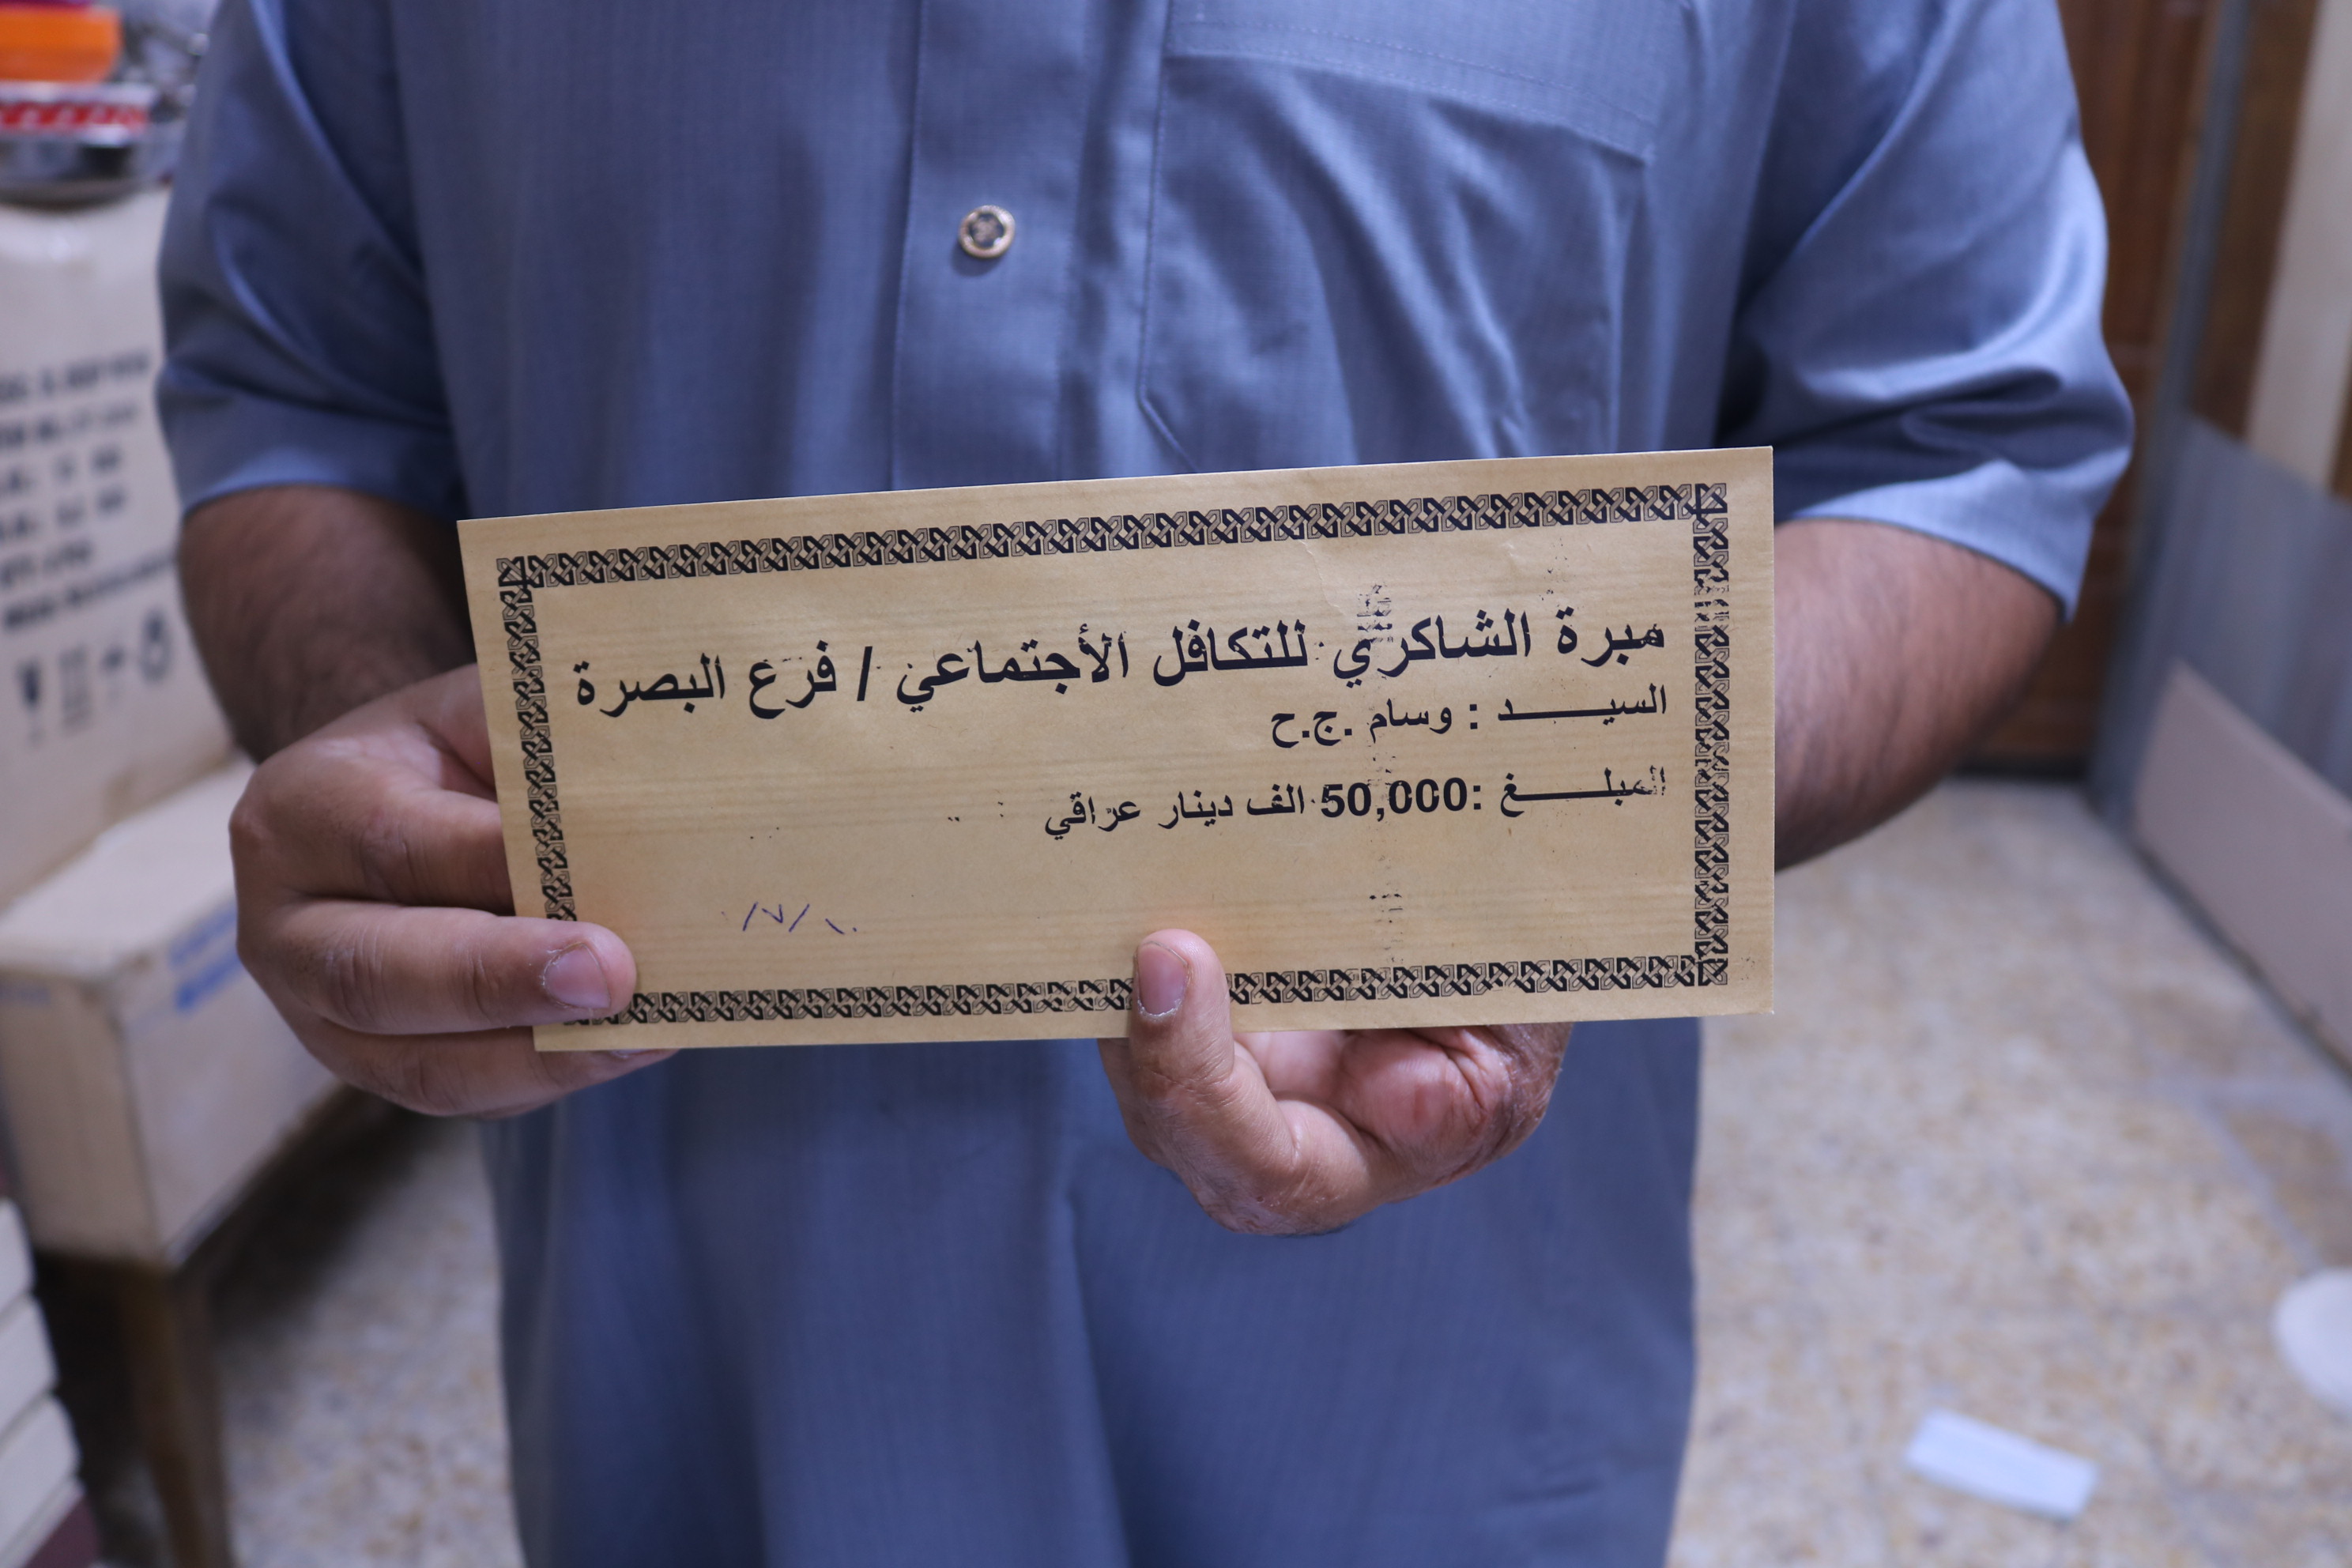 مبرة الشاكري للتكافل الأجتماعي / فرع البصرة
السيـــــد : وسام .ج.ح
المبلـــــغ :50,000 الف دينار عراقي
١٠/٧/